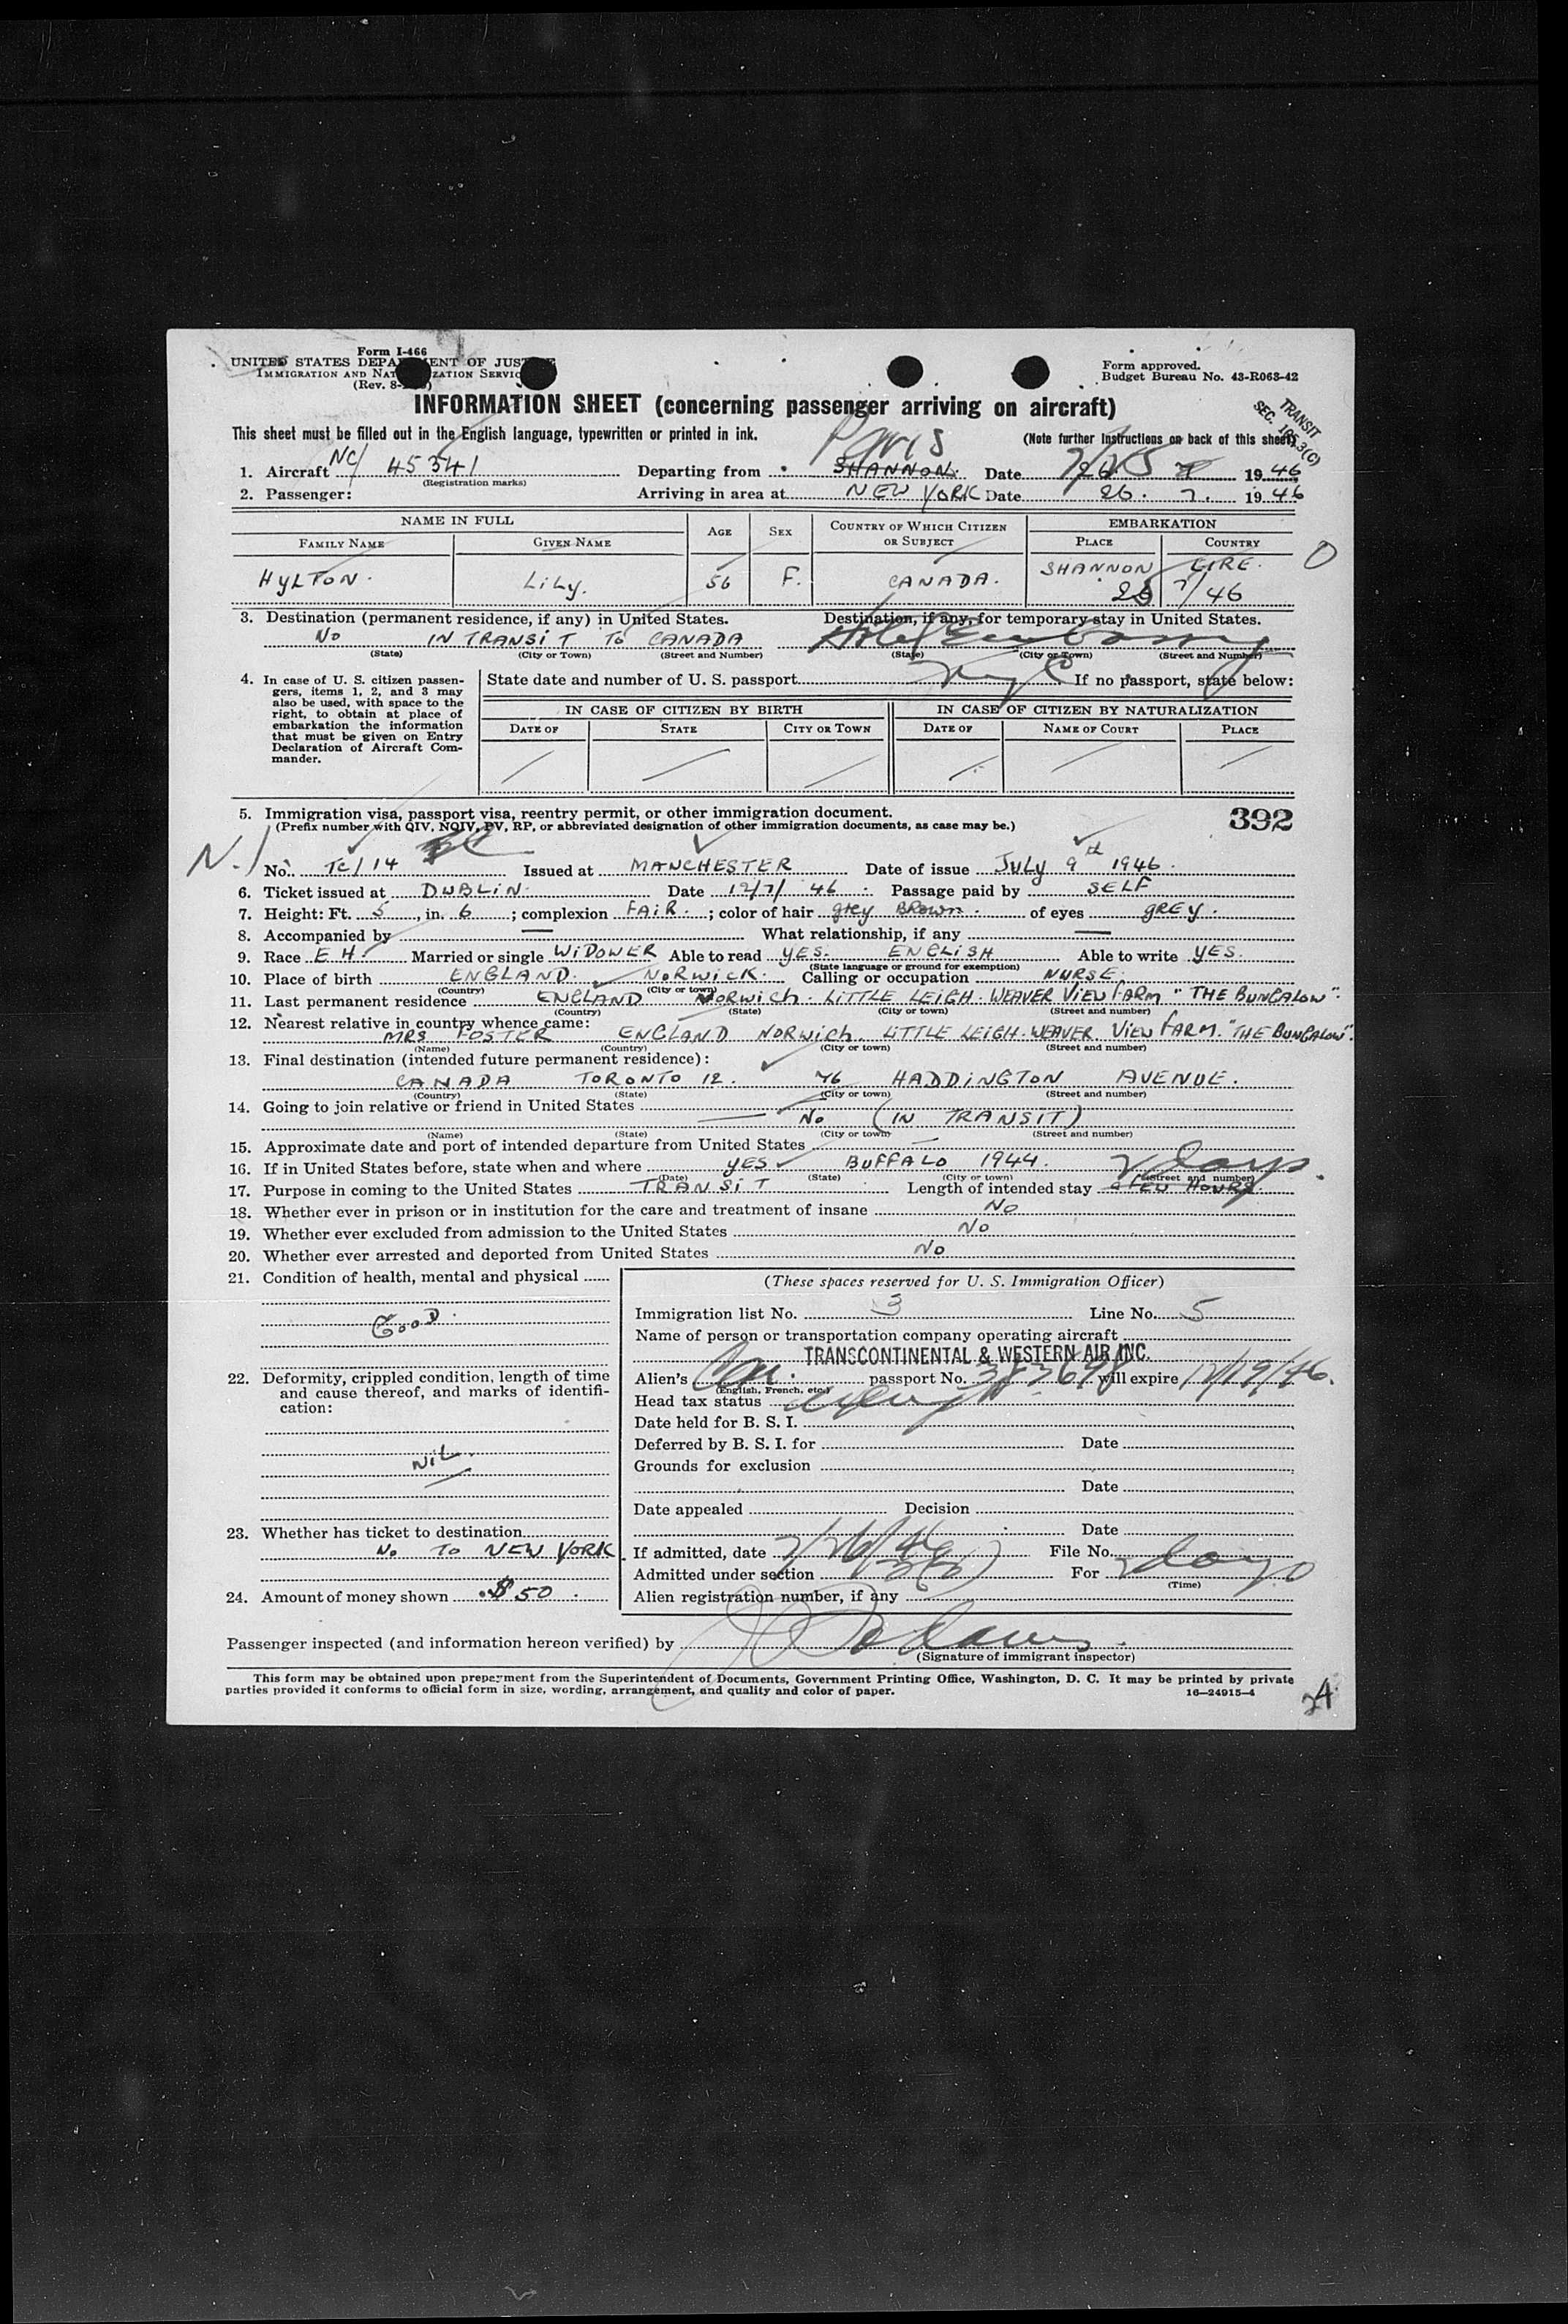 Form I-466
UNITED STATES DEPARTMENT OF JUSTICE
IMMIGRATION AND NATURALIZATION SERVICE
(Rev. 8-
Form approved.
Budget Bureau No. 43-R063-42
INFORMATION SHEET (concerning passenger arriving on aircraft)
TRANSIT
SEC.
This sheet must be filled out in the English language, typewritten or printed in ink.
(Note further instructions on back of this sheet)
Paris
1. Aircraft NC/ 45341 Departing from SHANNON. Date 1946
(Registration marks)
2. Passenger: Arriving in area at NEW YORK Date 26. 7. 1946
NAME IN FULL AGE SEX COUNTRY OF WHICH CITIZEN OR SUBJECT EMBARKATION
FAMILY NAME GIVEN NAME PLACE COUNTRY
HYLTON. LILY. 56 F. CANADA. SHANNON EIRE.
25 7/46
3. Destination (permanent residence, if any) in United States. Destination, if any, for temporary stay in United States.
NO IN TRANSIT TO CANADA Hotel Embassy
(State) (City or Town) (Street and Number) (State) (City or Town) (Street and Number)
NYC
4. In case of U. S. citizen passengers, items 1, 2, and 3 may also be used, with space to the right, to obtain at place of embarkation the information that must be given on Entry Declaration of Aircraft Commander.
State date and number of U. S. passport If no passport, state below:
IN CASE OF CITIZEN BY BIRTH IN CASE OF CITIZEN BY NATURALIZATION
DATE OF STATE CITY OR TOWN DATE OF NAME OF COURT PLACE
5. Immigration visa, passport visa, reentry permit, or other immigration document. 392
(Prefix number with QIV, NQIV, PV, RP, or abbreviated designation of other immigration documents, as case may be.)
No. TC/14 Issued at MANCHESTER Date of issue JULY 9th 1946.
6. Ticket issued at DUBLIN. Date 12/7/46. Passage paid by SELF
7. Height: Ft. 5, in. 6; complexion FAIR.; color of hair grey BROWN. of eyes GREY.
8. Accompanied by — What relationship, if any —
9. Race EH Married or single WIDOWER Able to read YES. ENGLISH Able to write YES.
(State language or ground for exemption)
10. Place of birth ENGLAND. NORWICK. Calling or occupation NURSE.
(Country) (City or town)
11. Last permanent residence ENGLAND NORWICH. LITTLE LEIGH. WEAVER VIEW FARM "THE BUNGALOW".
(Country) (State) (City or town) (Street and number)
12. Nearest relative in country whence came:
MRS FOSTER ENGLAND NORWICH. LITTLE LEIGH. WEAVER VIEW FARM. "THE BUNGALOW".
(Name) (Country) (City or town) (Street and number)
13. Final destination (intended future permanent residence):
CANADA TORONTO 12. 76 HADDINGTON AVENUE.
(Country) (State) (City or town) (Street and number)
14. Going to join relative or friend in United States
NO (IN TRANSIT)
(Name) (State) (City or town) (Street and number)
15. Approximate date and port of intended departure from United States —
16. If in United States before, state when and where YES BUFFALO 1944.
(Date) (State) (City or town) (Street and number)
2 days.
17. Purpose in coming to the United States TRANSIT Length of intended stay a FEW HOURS.
18. Whether ever in prison or in institution for the care and treatment of insane NO
19. Whether ever excluded from admission to the United States NO
20. Whether ever arrested and deported from United States NO
21. Condition of health, mental and physical
GOOD.
22. Deformity, crippled condition, length of time and cause thereof, and marks of identification:
NIL
23. Whether has ticket to destination
NO TO NEW YORK
24. Amount of money shown $50.
(These spaces reserved for U. S. Immigration Officer)
Immigration list No. 3 Line No. 5
Name of person or transportation company operating aircraft
TRANSCONTINENTAL & WESTERN AIR INC.
Alien's Can. passport No. 383698 will expire 12/19/46.
(English, French, etc.)
Head tax status
Date held for B. S. I.
Deferred by B. S. I. for Date
Grounds for exclusion
Date
Date appealed Decision
Date
If admitted, date 7/26/46 File No.
Admitted under section For 2 days
(Time)
Alien registration number, if any
Passenger inspected (and information hereon verified) by
(Signature of immigrant inspector)
This form may be obtained upon prepayment from the Superintendent of Documents, Government Printing Office, Washington, D. C. It may be printed by private
parties provided it conforms to official form in size, wording, arrangement, and quality and color of paper. 16—24915-4